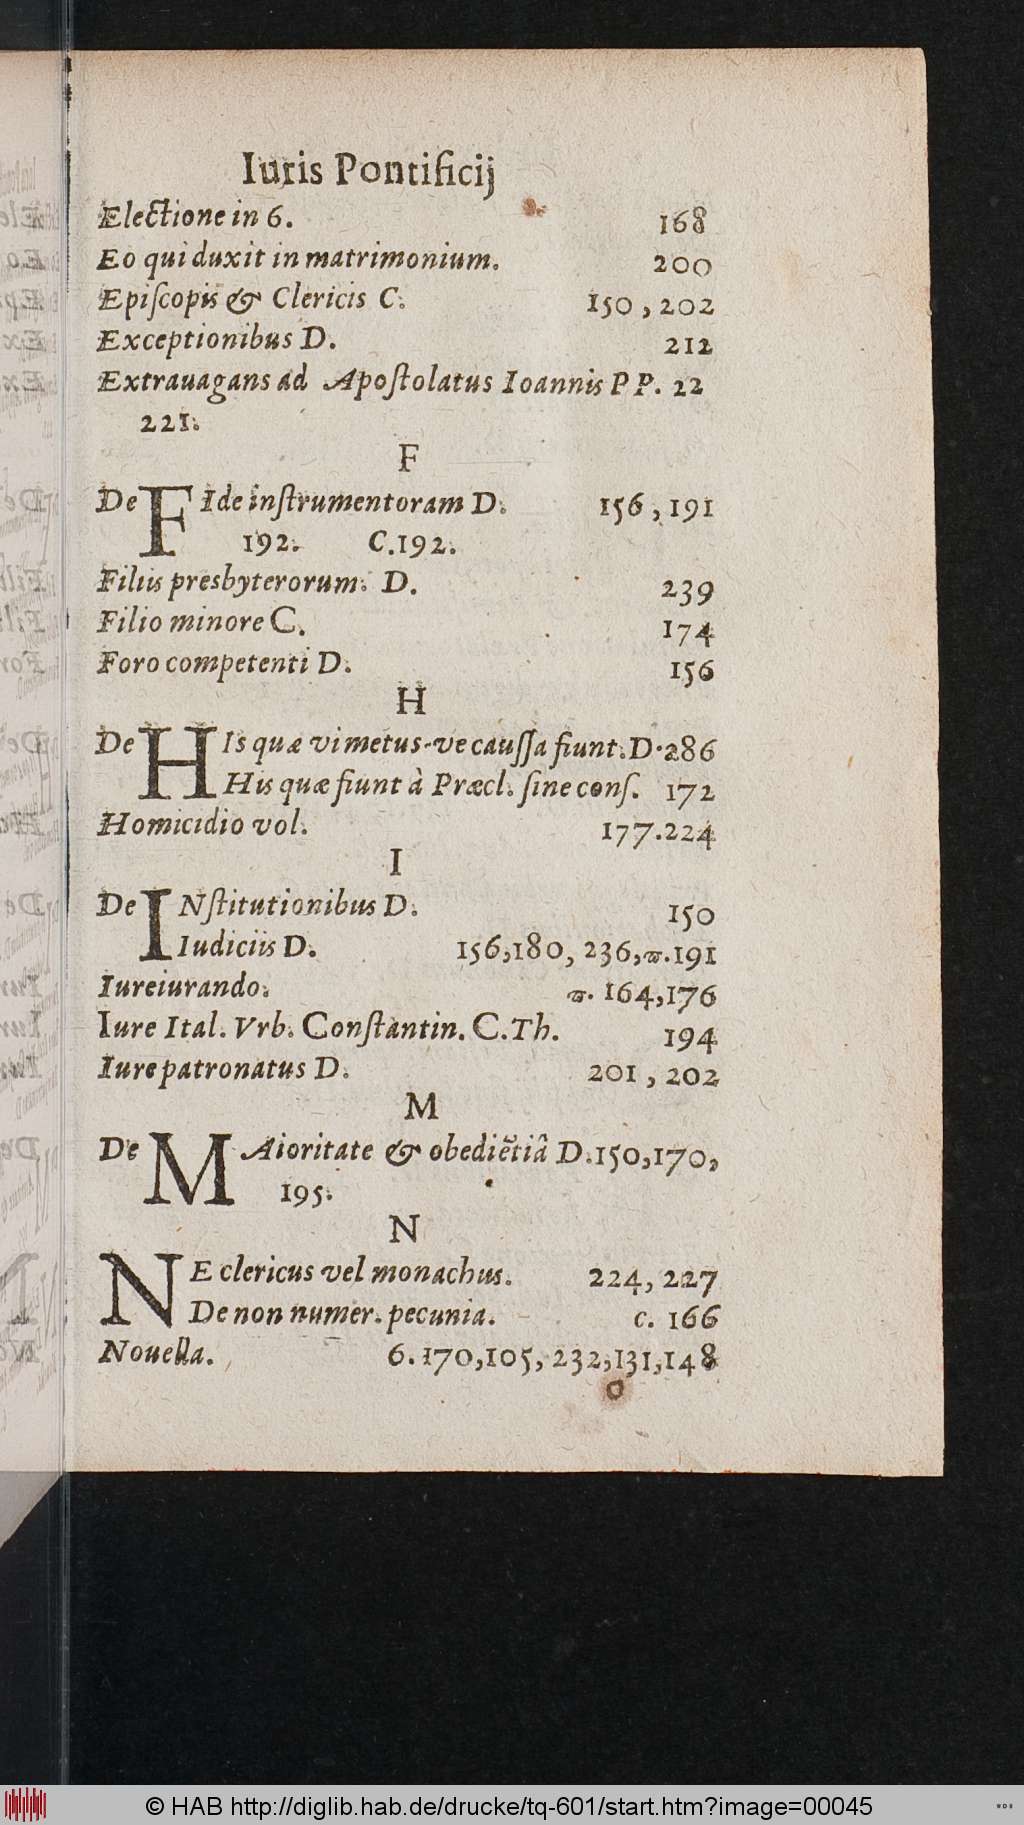 Iuris Pontificij
Electione in 6. 168
Eo qui duxit in matrimonium. 200
Epiſcopis & Clericis C. 150, 202
Exceptionibus D. 212
Extrauagans ad Apoſtolatus Ioannis P P. 22
221.
F
De FIde inſtrumentoram D. 156, 191
192. C.192.
Filiis presbyterorum. D. 239
Filio minore C. 174
Foro competenti D. 156
H
De HIs quæ vi metus-ve cauſſa fiunt. D. 286
His quæ fiunt à Præcl. ſine conſ. 172
Homicidio vol. 177.224
I
De INſtitutionibus D. 150
Iudiciis D. 156,180, 236, ϖ.191
Iureiurando. ϖ. 164,176
Iure Ital. Vrb. Conſtantin. C.Th. 194
Iure patronatus D. 201, 202
M
De MAioritate & obediẽtiâ D.150,170,
195.
N
NE clericus vel monachus. 224, 227
De non numer. pecunia. c. 166
Nouella. 6.170,105, 232,131,148
O
© HAB http://diglib.hab.de/drucke/tq-601/start.htm?image=00045